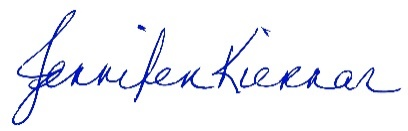 Jennifer Kiernan